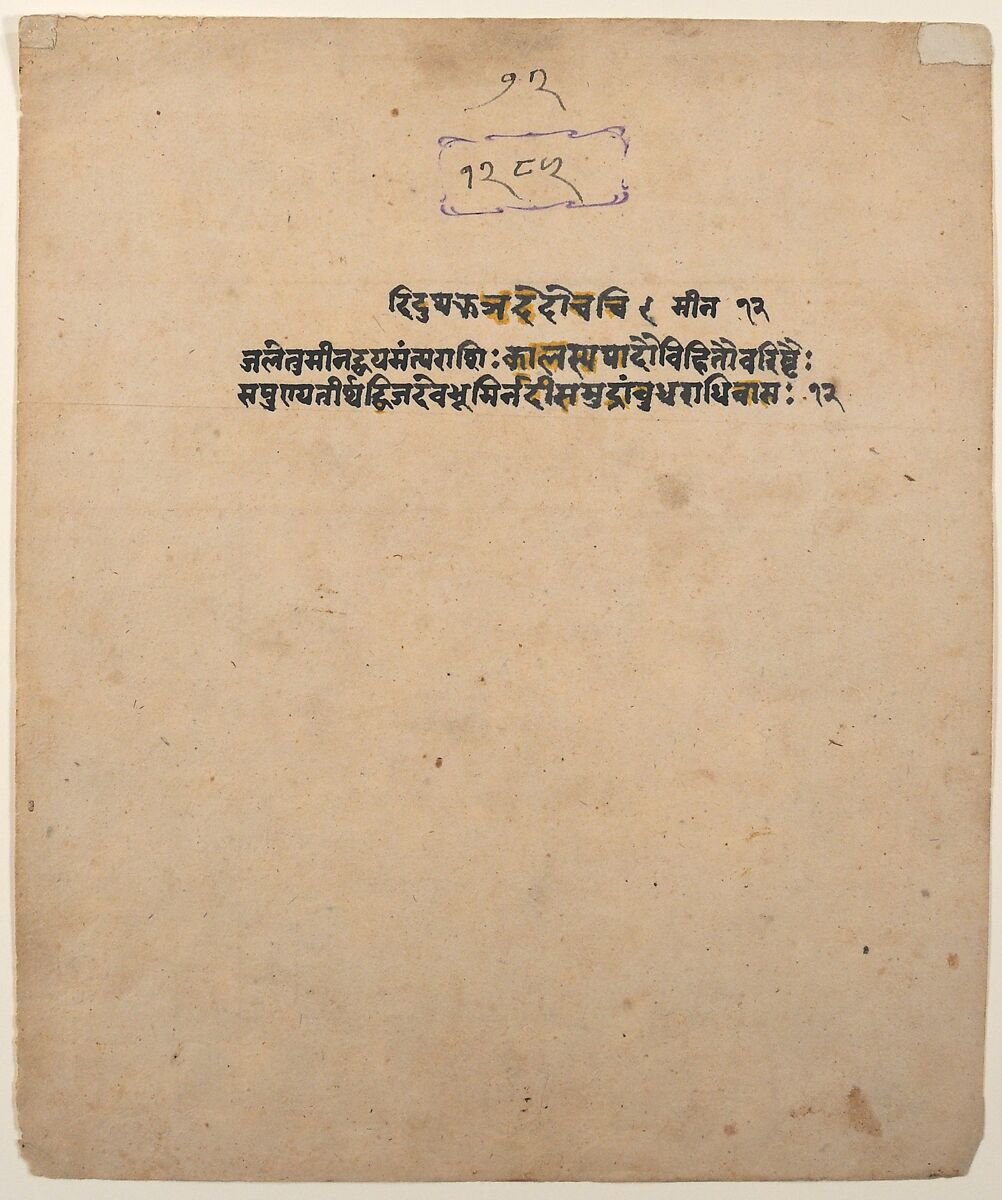 १२
१२८५
रिदुथझञददेदोचचि ९ मीन १२
जलेतुमीनद्वयमंत्यराशिः कालस्यपादौविहितौवरिष्टैः
सपुण्यतीर्थद्विजदेवभूमिर्नदीसमुद्रांबुधराधिवासः १२